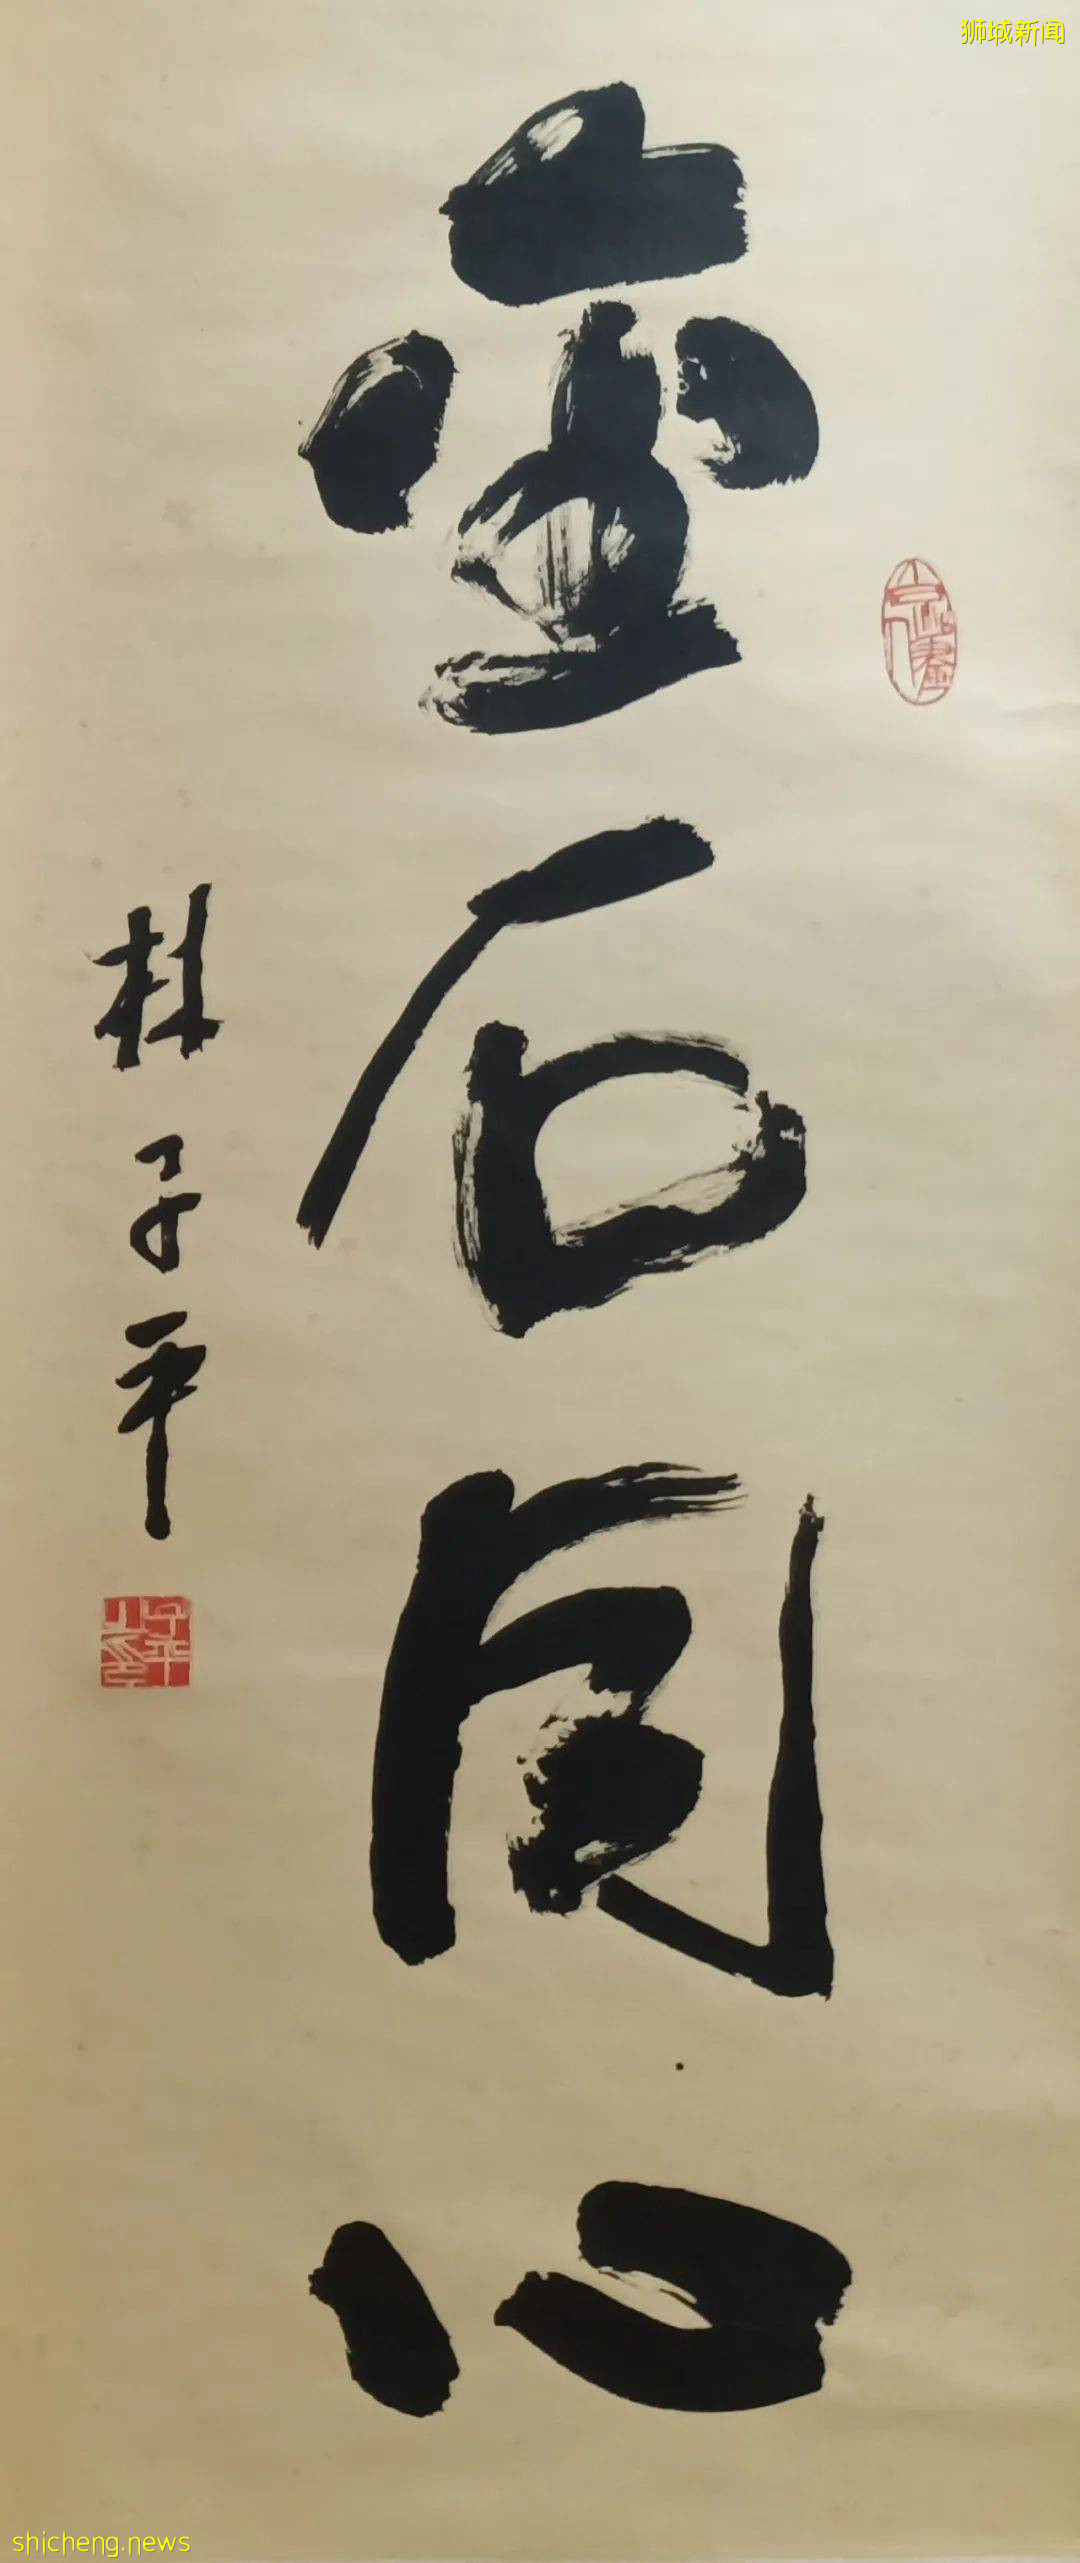 狮城新闻
金石同心
林子平
shicheng.news